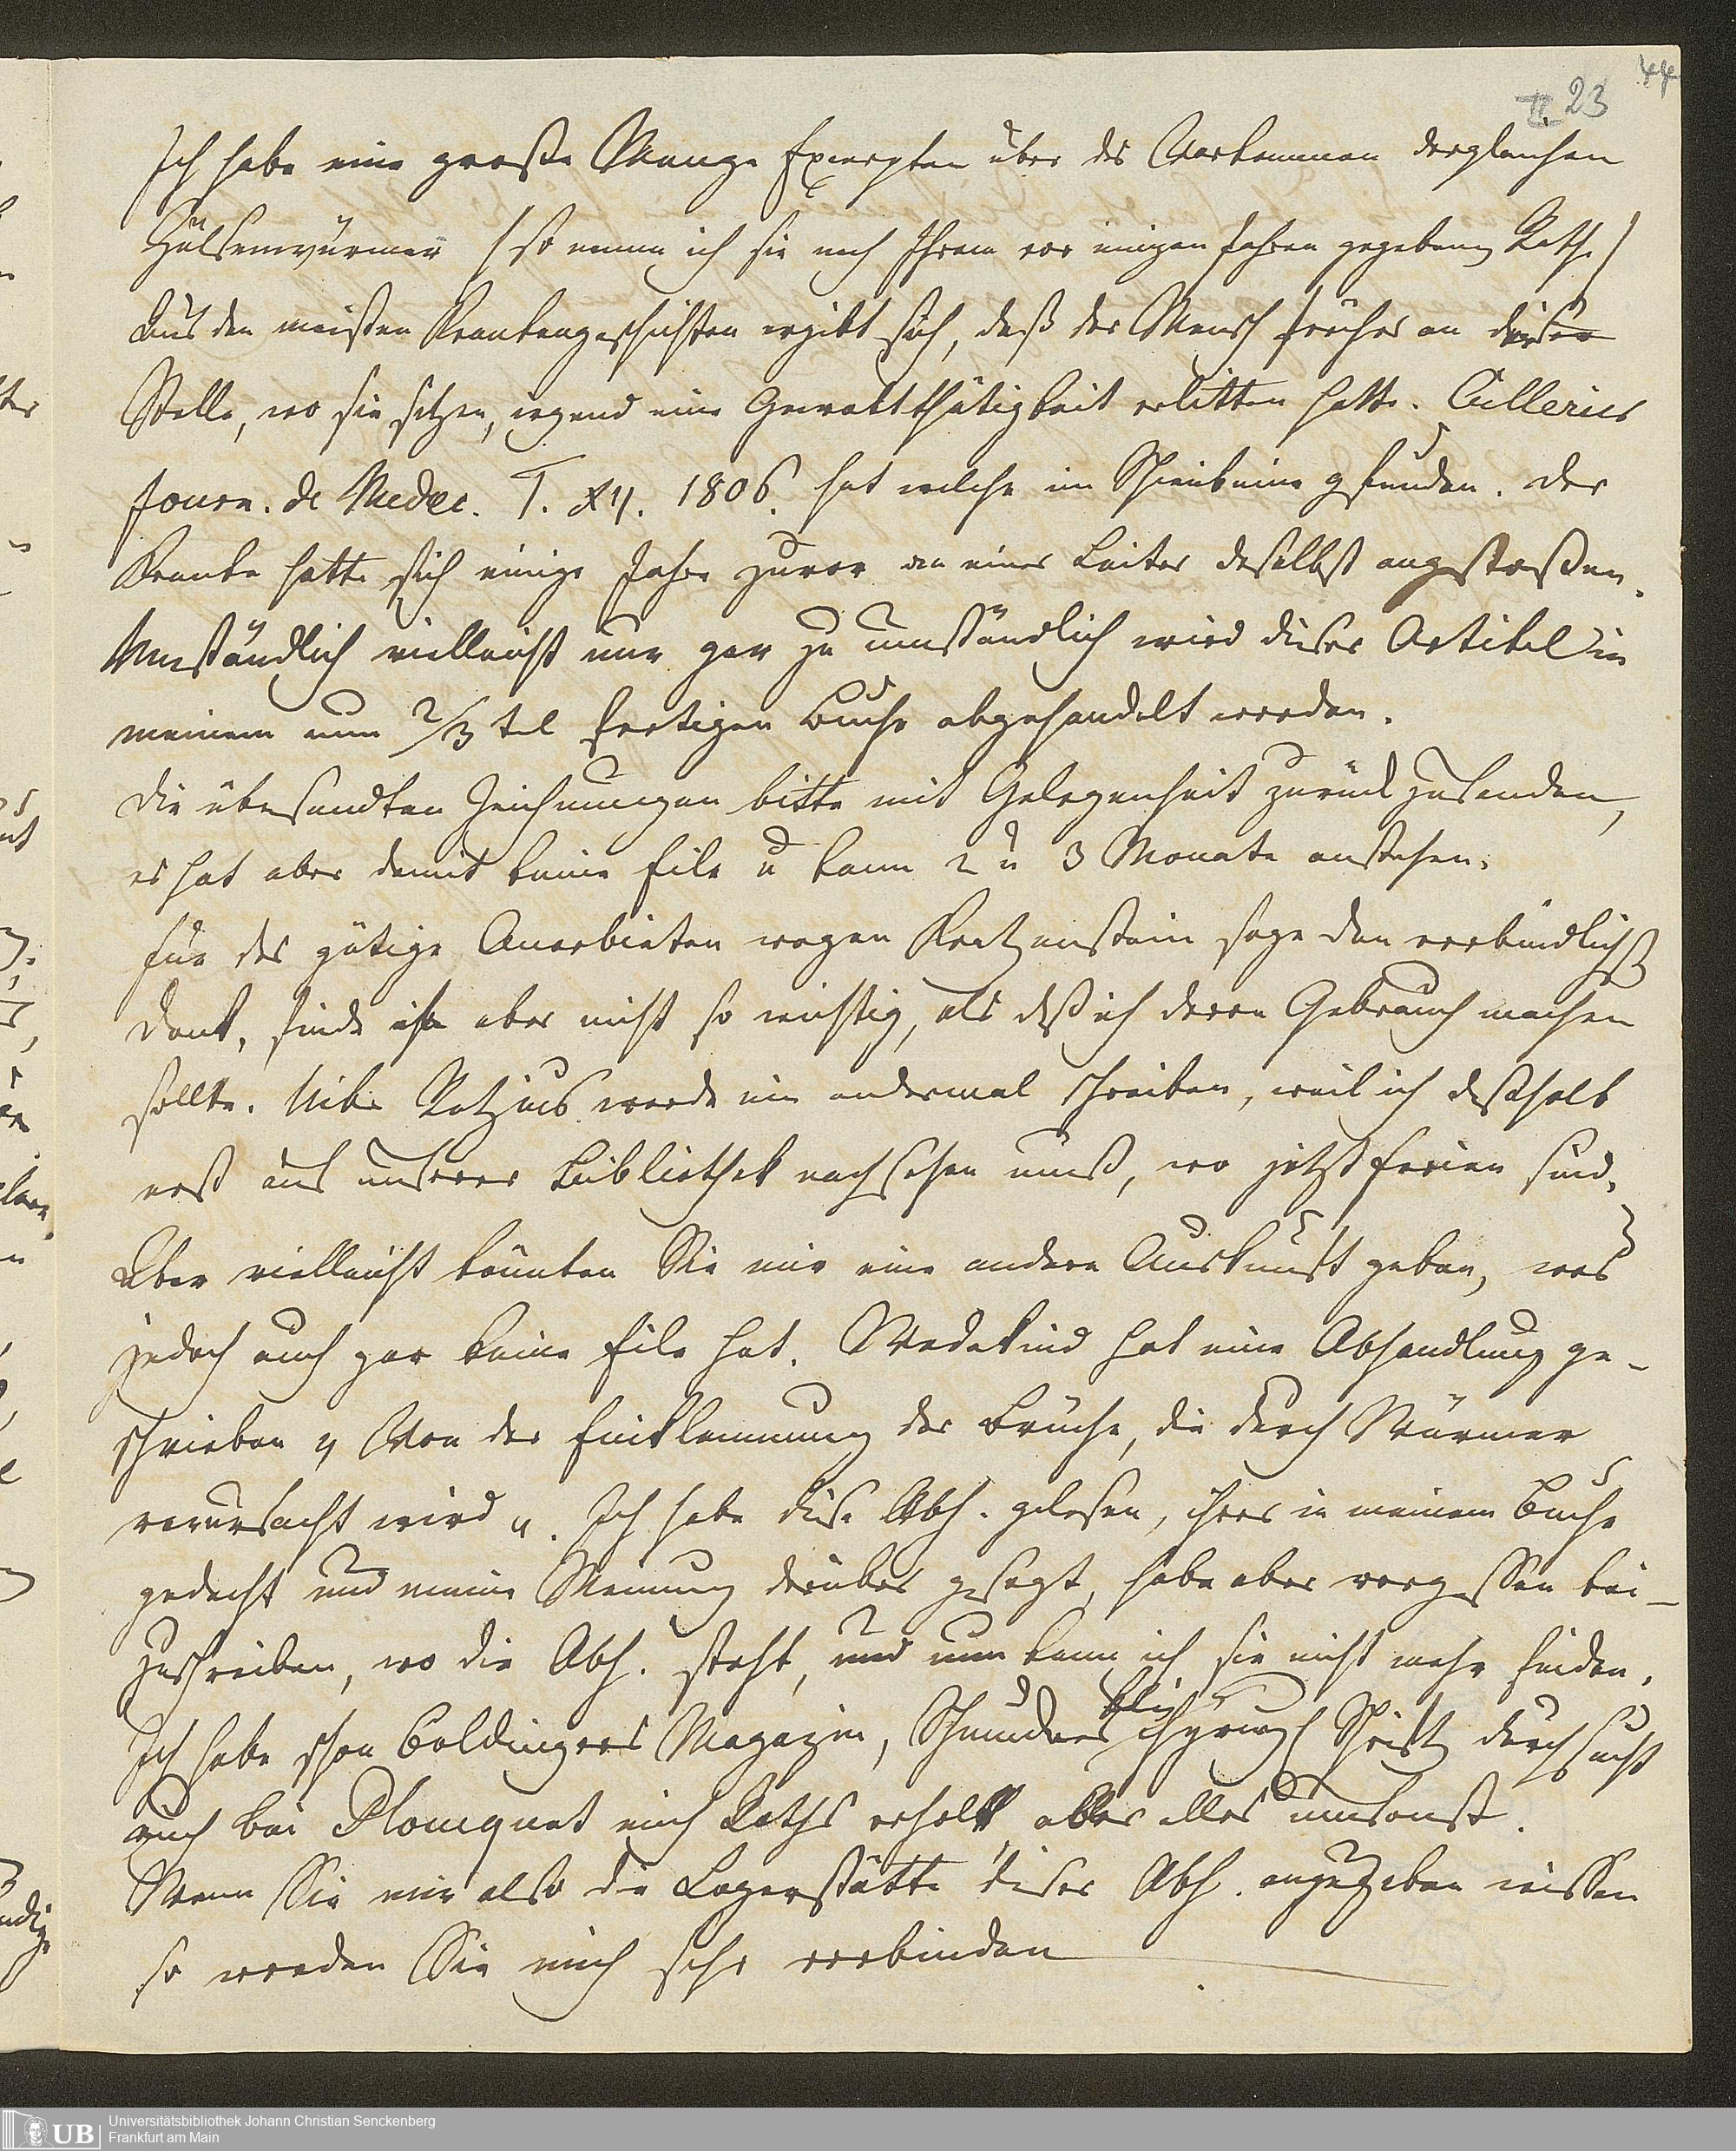 44
II. 23
Ich habe eine große Menge Excerpten über das Vorkommen dergleichen
Hülsenwürmer (so nenne ich sie nach Ihrem vor einigen Jahren gegebenen Rathe)
Aus den meisten Krankengeschichten ergibt sich, daß der Mensch früher an dieser
Stelle, wo sie sitzen, irgend eine Gewaltthätigkeit erlitten hatte. Cullerier
Journ. de Medec. T. XII. 1806. hat welche im Schienbeine gefunden. Der
Kranke hatte sich einige Jahre zuvor an einer Leiter daselbst angestoßen.
Umständlich vielleicht nur gar zu umständlich wird dieser Artikel in
meinem nun 2/3 tel fertigen Buche abgehandelt werden.
Die übersandten Zeichnungen bitte mit Gelegenheit zurück zu senden,
es hat aber damit keine Eile u kann 2 u 3 Monate anstehen.
Für das gütige Anerbieten wegen Kratzenstein sage den verbindlichst
Dank, finde ihn aber nicht so wichtig, als daß ich davon Gebrauch machen
sollte. Über Retzius werde ein andermal schreiben, weil ich deßhalb
erst auf unserer Bibliothek nachsehen muß, wo jetzt Ferien sind.
Aber vielleicht könnten Sie mir eine andere Auskunft geben, was
jedoch auch gar keine Eile hat. Wedekind hat eine Abhandlung ge-
schrieben „ Von der Einklemmung der Brüche, die durch Würmer
verursacht wird ". Ich habe diese Abh. gelesen, ihrer in meinem Buche
gedacht und meine Meinung darüber gesagt, habe aber vergessen bei-
zuschreiben, wo die Abh. steht, und nun kann ich sie nicht mehr finden.
Ich habe schon Baldingers Magazin, Schmuckers chyrurg Schrift durchsucht
auch bei Ploucquet mich Raths erholt, aber alles umsonst.
Wenn Sie mir also die Lagerstätte dieser Abh. anzugeben wissen
so werden Sie mich sehr verbinden
UB Universitätsbibliothek Johann Christian Senckenberg
Frankfurt am Main